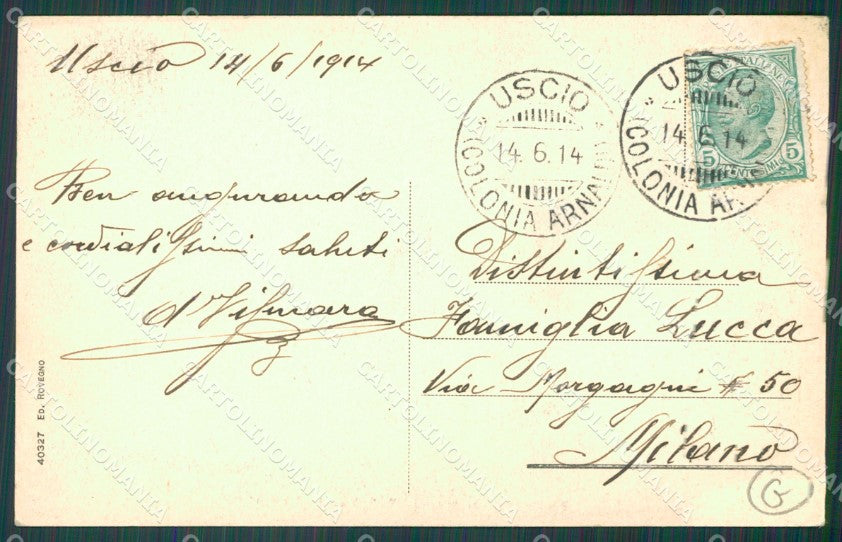 Uscio 14/6/1914
USCIO
14.6.14
(COLONIA ARNALDI)
USCIO
14.6.14
(COLONIA AR
5 5
Ben augurando
e cordialissimi saluti
Distintissima
Famiglia Lucca
Via Morgagni # 50
Milano
G
40327 ED. ROVEGNO
CARTOLINOMANIA